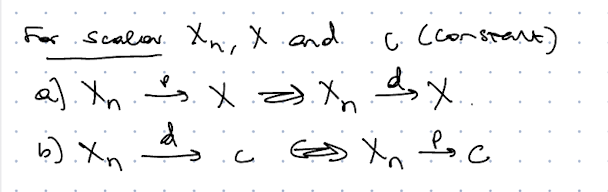 For scalar Xn, X and c (constant)
a) Xn →p X ⇒ Xn →d X
b) Xn →d c ⇔ Xn →p c